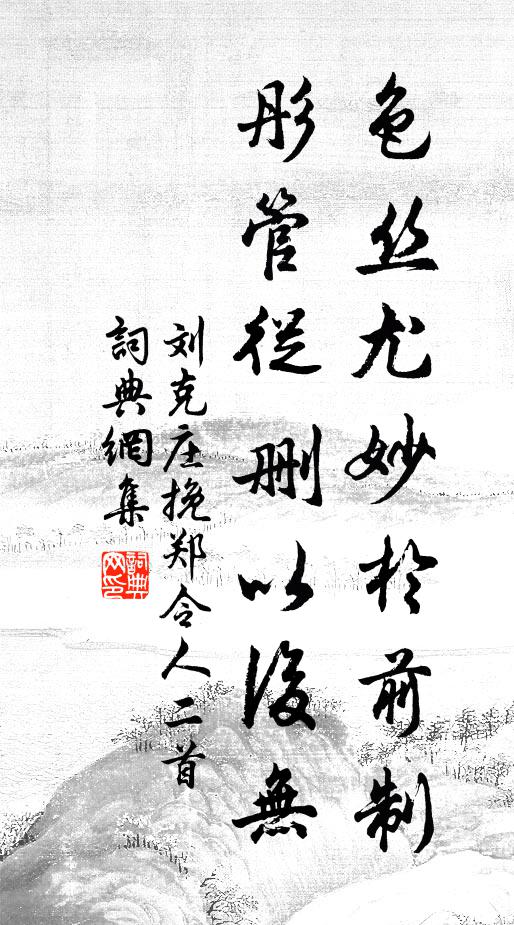 色丝尤妙於前制
彤管從删以後無
刘克庄挽郑令人二首
詞典網集
詞典网印